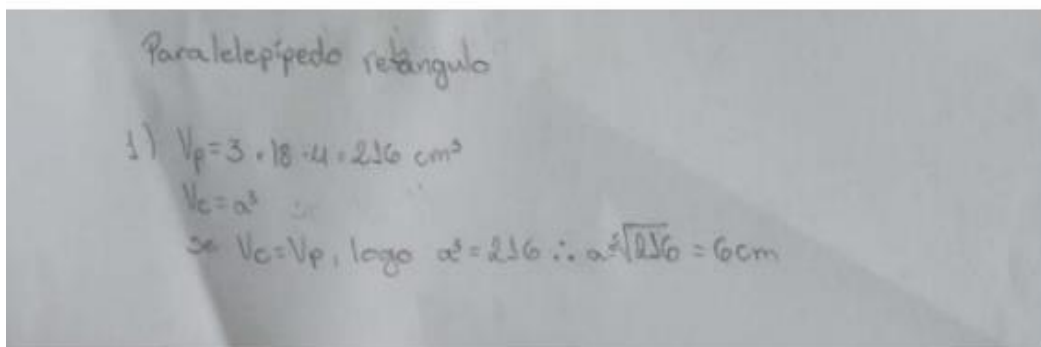 Paralelepípedo retângulo
1) Vp = 3 · 18 · 4 = 216 cm³
Vc = a³
se Vc = Vp, logo a³ = 216 ∴ a = ∛216 = 6cm